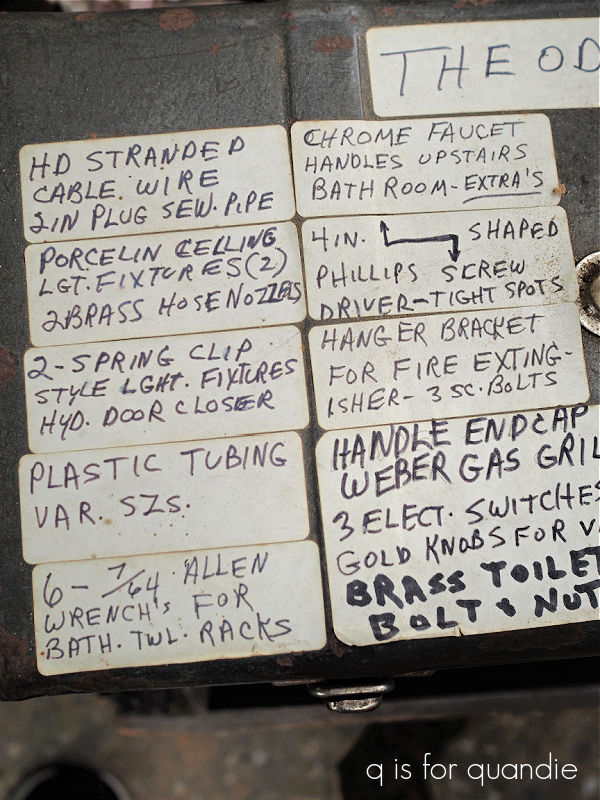 THE OD
HD STRANDED
CABLE WIRE
2IN PLUG SEW. PIPE
PORCELIN CELLING
LGT. FIXTURES (2)
2 BRASS HOSE NOZZELS
2-SPRING CLIP
STYLE LGHT. FIXTURES
HYD. DOOR CLOSER
PLASTIC TUBING
VAR. SZS.
6 - 7/64 ALLEN
WRENCH'S FOR
BATH. TWL. RACKS
CHROME FAUCET
HANDLES UPSTAIRS
BATHROOM-EXTRA'S
4IN. SHAPED
PHILLIPS SCREW
DRIVER-TIGHT SPOTS
HANGER BRACKET
FOR FIRE EXTING-
ISHER- 3 SC. BOLTS
HANDLE ENDCAP
WEBER GAS GRIL
3 ELECT. SWITCHES
GOLD KNOBS FOR V
BRASS TOILET
BOLT + NUT
q is for quandie